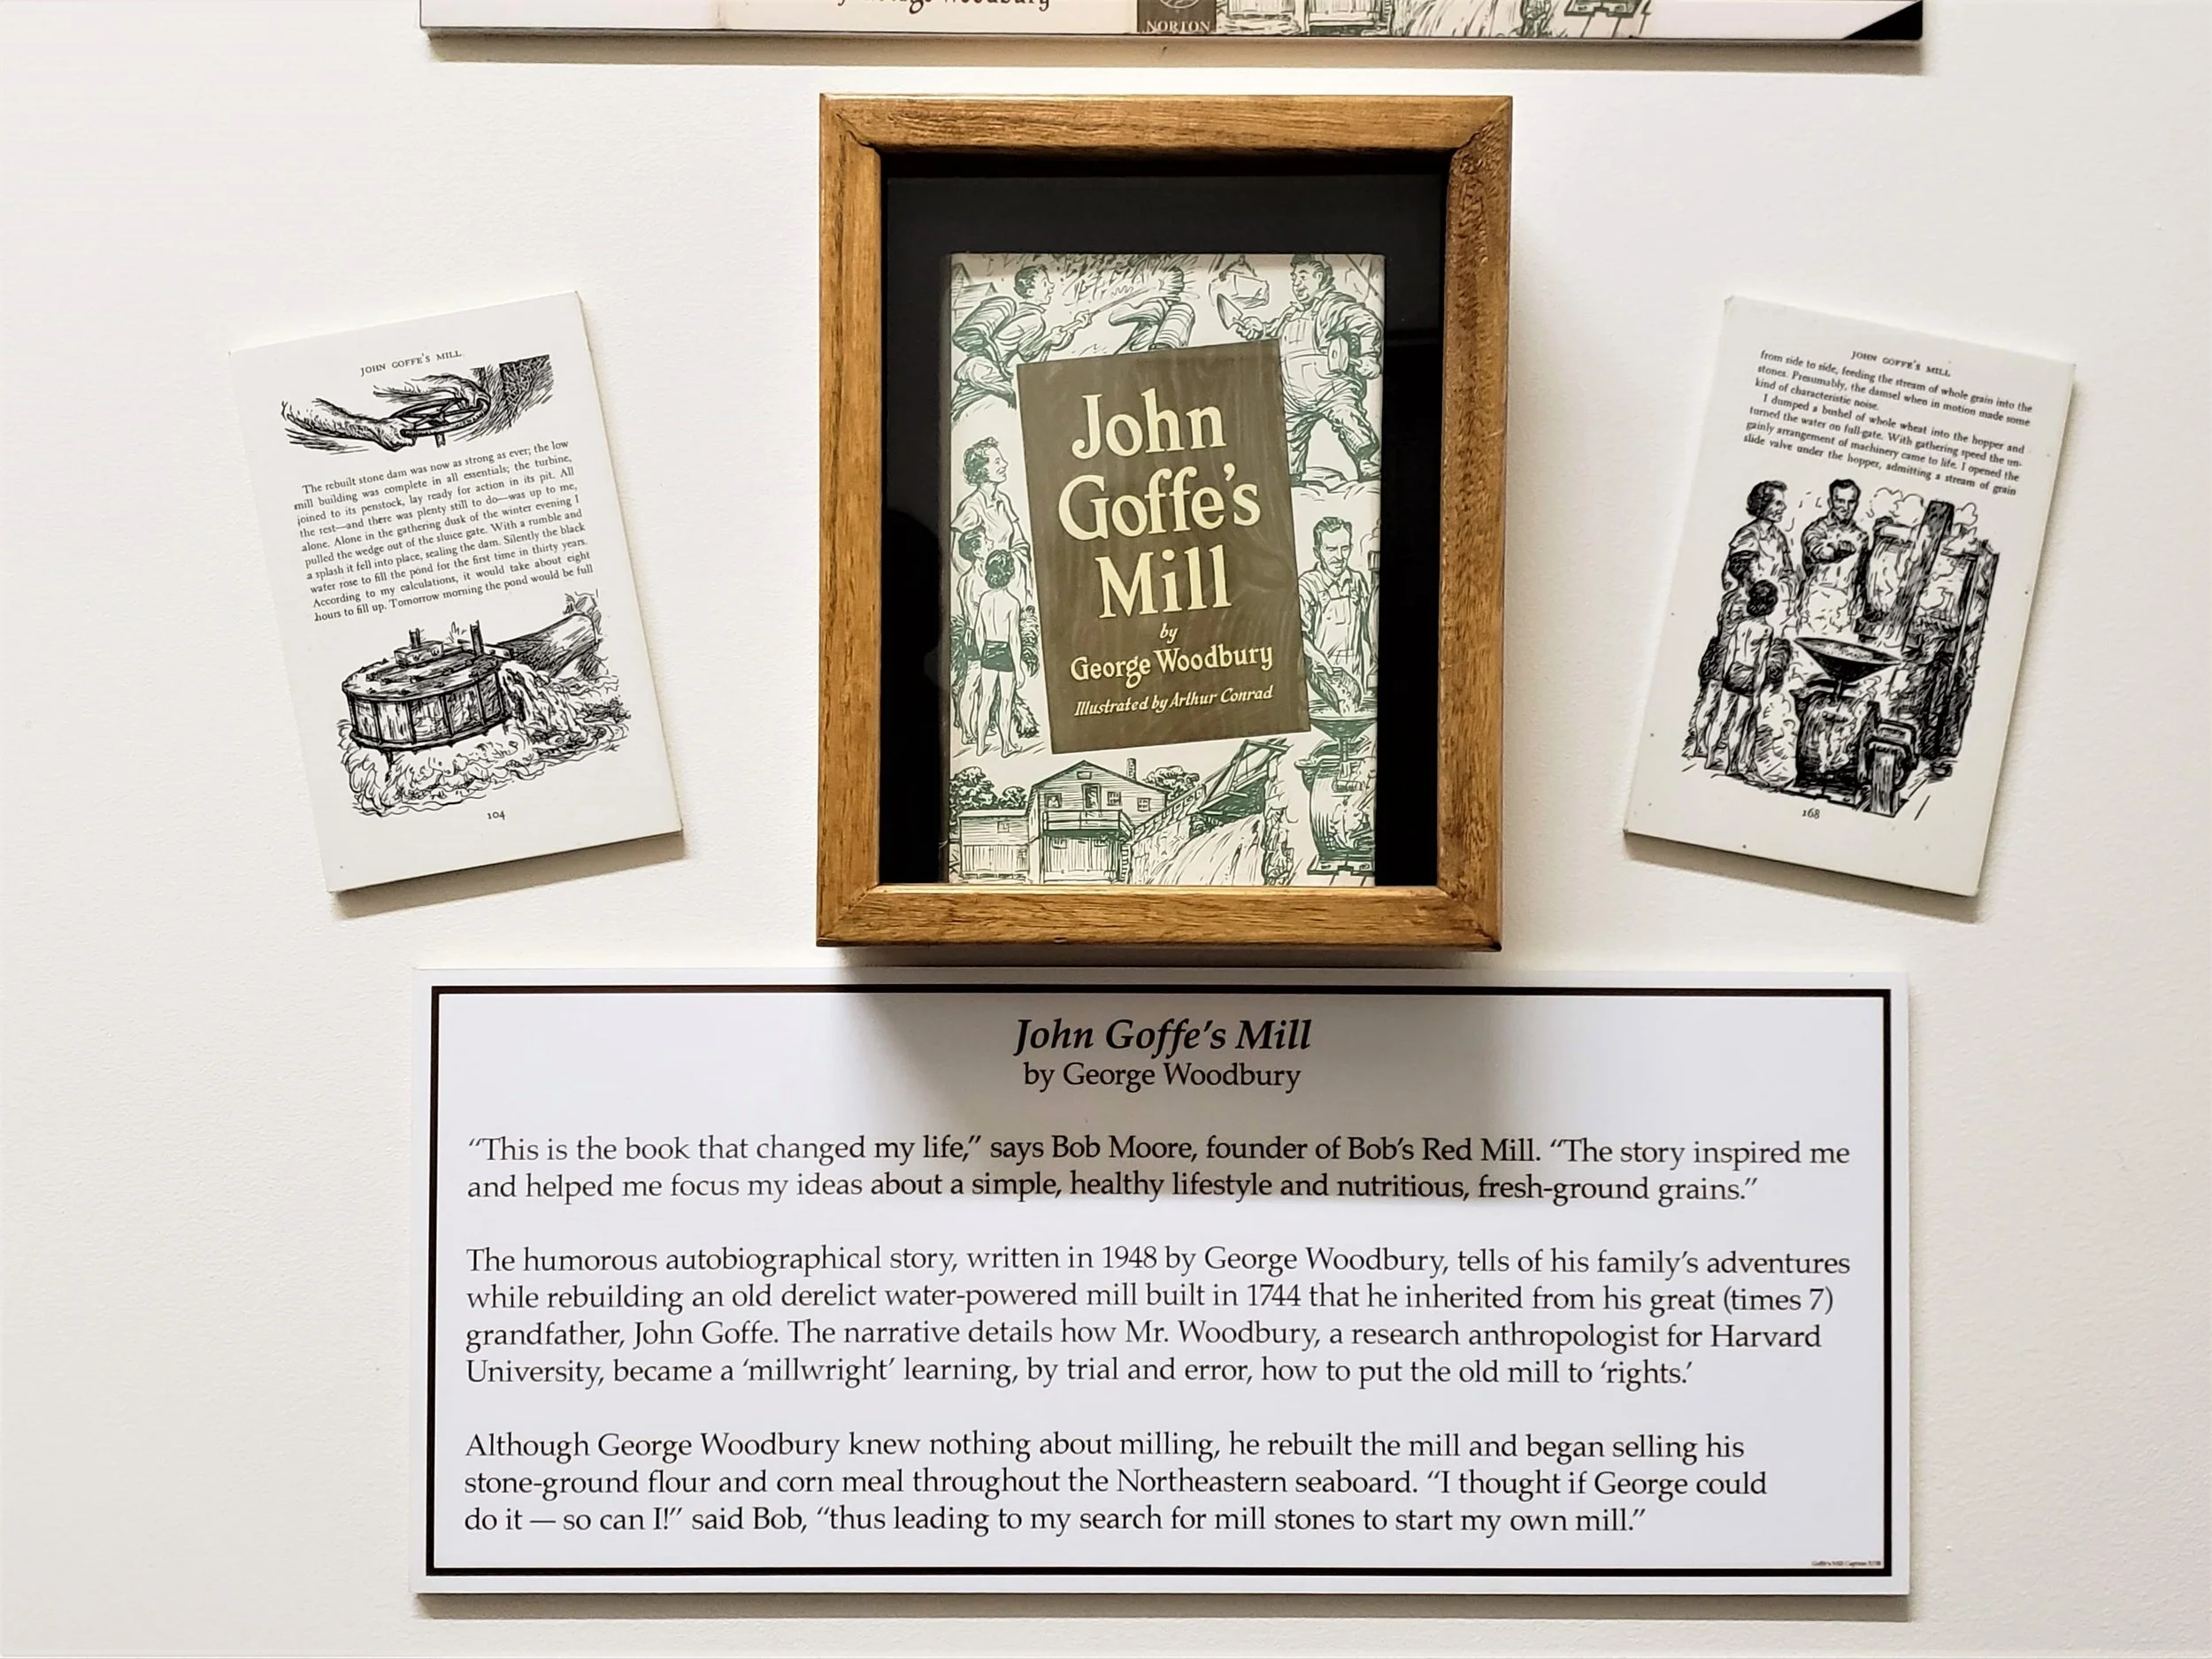 by George Woodbury
NORTON
JOHN GOFFE'S MILL
The rebuilt stone dam was now as strong as ever; the low
mill building was complete in all essentials; the turbine,
joined to its penstock, lay ready for action in its pit. All
the rest—and there was plenty still to do—was up to me,
alone. Alone in the gathering dusk of the winter evening I
pulled the wedge out of the sluice gate. With a rumble and
a splash it fell into place, sealing the dam. Silently the black
water rose to fill the pond for the first time in thirty years.
According to my calculations, it would take about eight
hours to fill up. Tomorrow morning the pond would be full
104
John
Goffe's
Mill
by
George Woodbury
Illustrated by Arthur Conrad
JOHN GOFFE'S MILL
from side to side, feeding the stream of whole grain into the
stones. Presumably, the damsel when in motion made some
kind of characteristic noise.
I dumped a bushel of whole wheat into the hopper and
turned the water on full-gate. With gathering speed the un-
gainly arrangement of machinery came to life. I opened the
slide valve under the hopper, admitting a stream of grain
168
John Goffe's Mill
by George Woodbury
“This is the book that changed my life,” says Bob Moore, founder of Bob’s Red Mill. “The story inspired me
and helped me focus my ideas about a simple, healthy lifestyle and nutritious, fresh-ground grains.”
The humorous autobiographical story, written in 1948 by George Woodbury, tells of his family’s adventures
while rebuilding an old derelict water-powered mill built in 1744 that he inherited from his great (times 7)
grandfather, John Goffe. The narrative details how Mr. Woodbury, a research anthropologist for Harvard
University, became a ‘millwright’ learning, by trial and error, how to put the old mill to ‘rights.’
Although George Woodbury knew nothing about milling, he rebuilt the mill and began selling his
stone-ground flour and corn meal throughout the Northeastern seaboard. “I thought if George could
do it — so can I!” said Bob, “thus leading to my search for mill stones to start my own mill.”